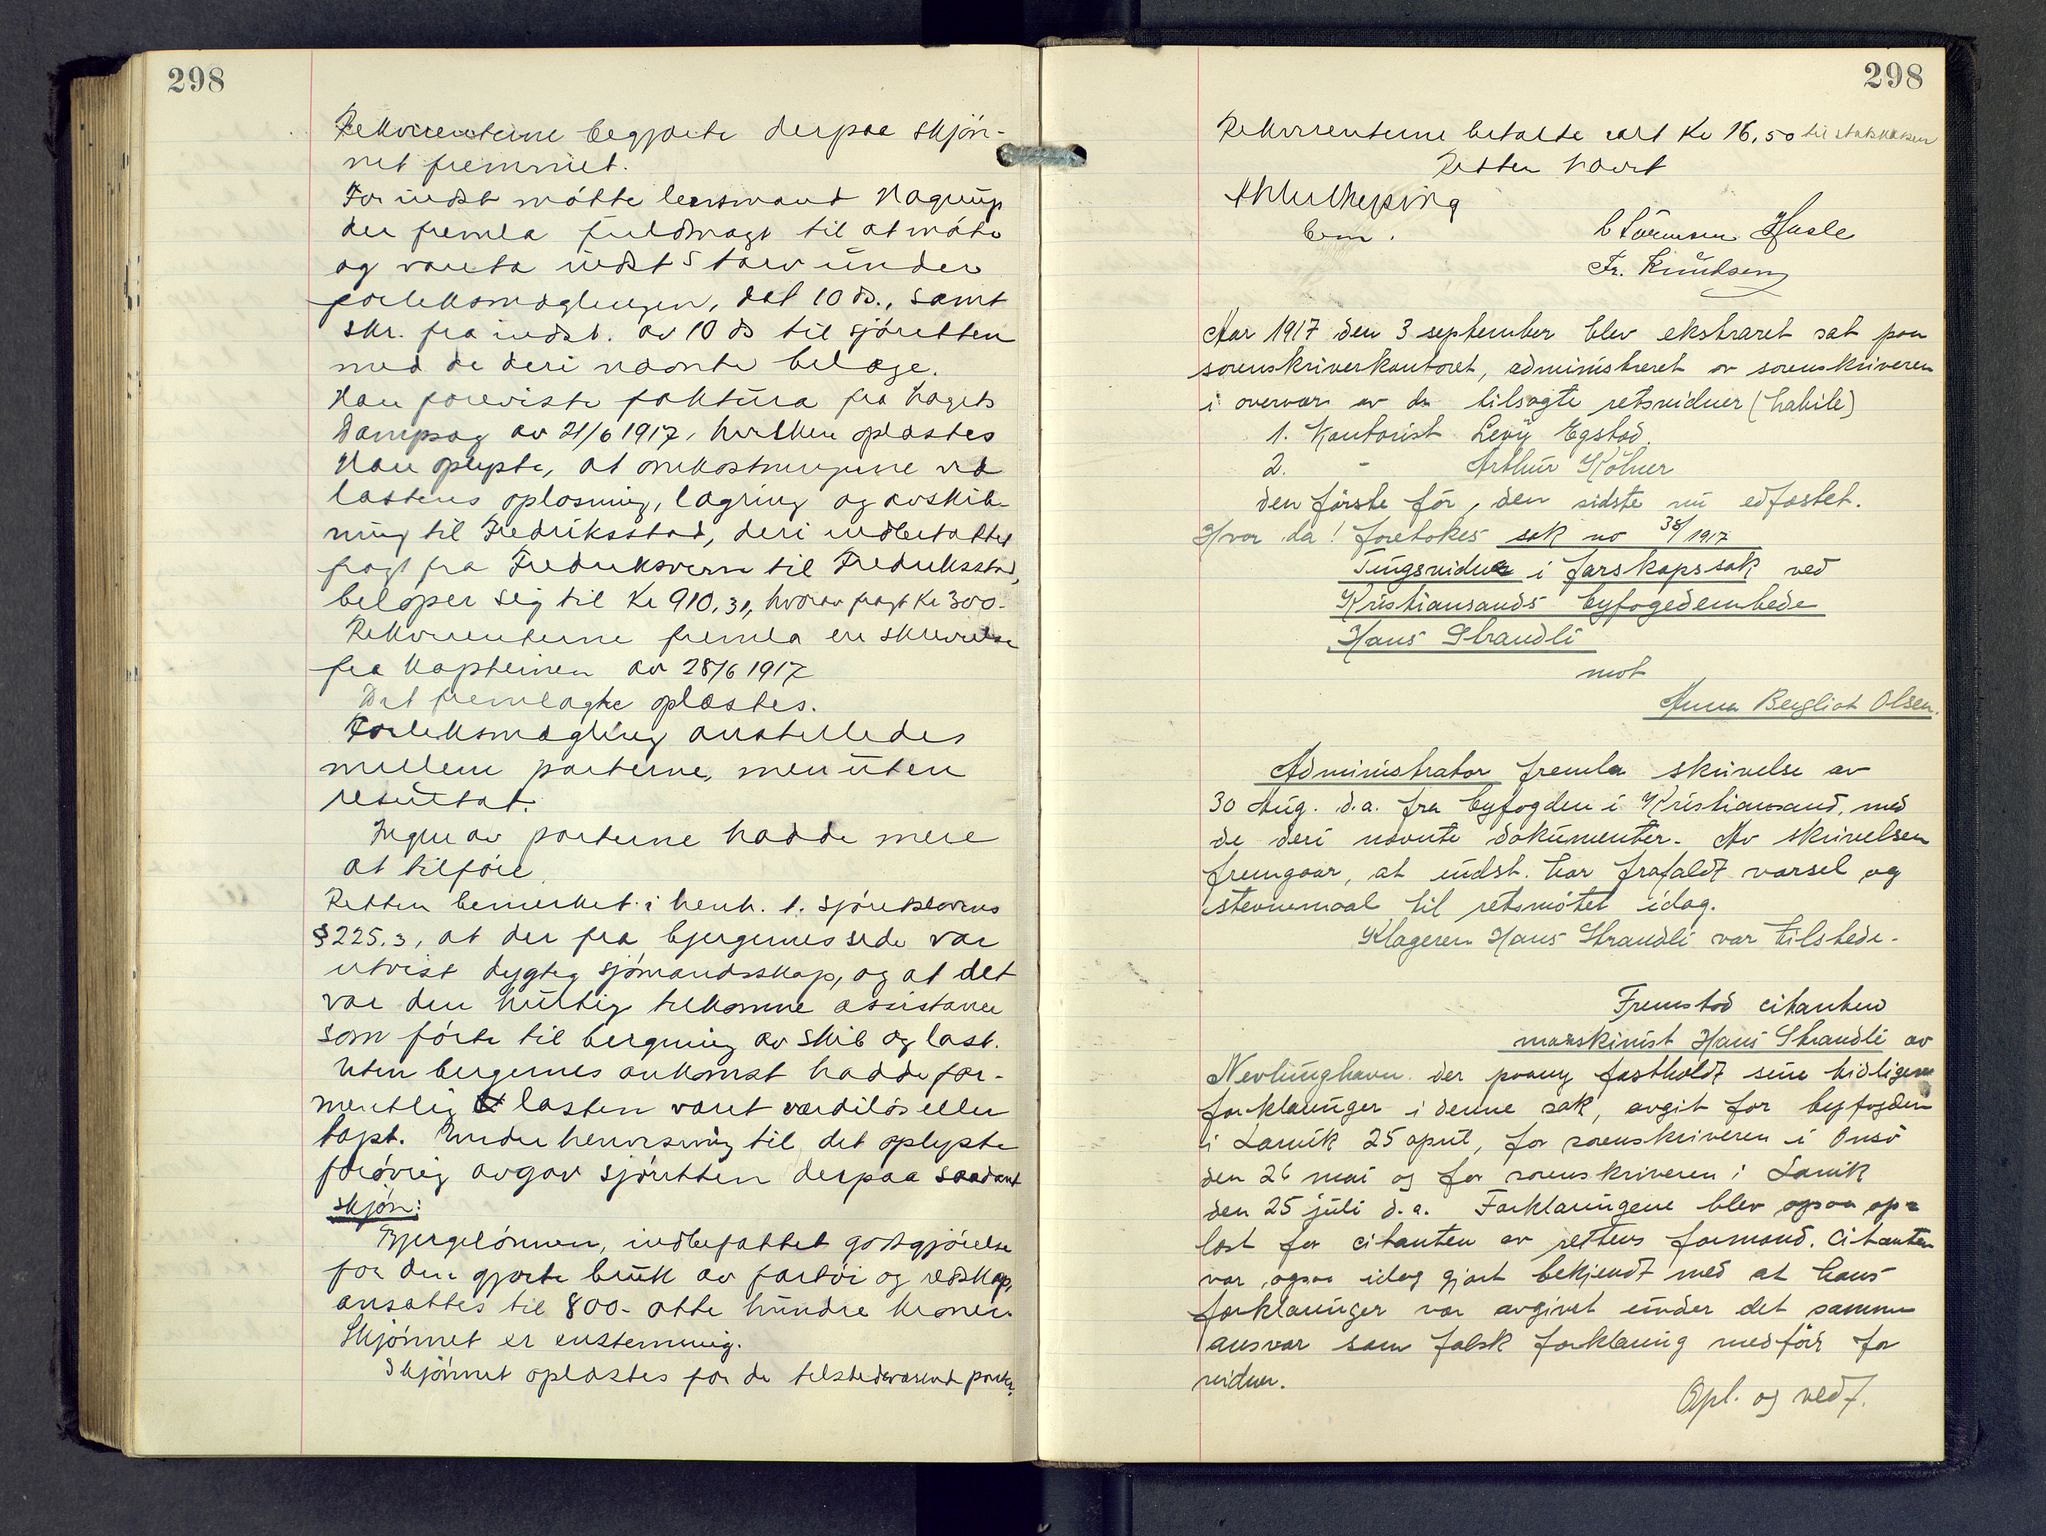 298
Rekvirenterne begjærte derpaa skjøn-
net fremmet.
For indst møtte lensmand Hagrup
der fremla fuldmagt til at møte
og vareta indst's tarv under
forliksmæglingen, dat 10 ds., samt
skr. fra indst. av 10 ds til sjøretten
med de deri nævnte bilage.
Han foreviste faktura fra
Dampsag av 21/6 1917, hvilken oplæstes
Han oplyste, at omkostningerne ved
lastens oplosning, lagring og avskib-
ning til Fredriksstad, deri indbefattet
fragt fra Fredriksvern til Fredriksstad,
beløper sig til Kr 910,31, hvorav fragt Kr 300.-
Rekvirenterne fremla en skrivelse
fra kapteinen av 28/6 1917
Det fremlagte oplæstes.
Forliksmægling anstilledes
mellem parterne, men uten
resultat.
Ingen av parterne hadde mere
at tilføie.
Retten bemerket i henh. t. sjøretslovens
§ 225.3, at der fra bjergernes side var
utvist dygtig sjømandsskap, og at det
var den hurtig tilkomne assistance
som førte til bergning av skib og last.
Uten bergernes ankomst hadde for-
mentlig lasten været værdiløs eller
tapt. Under henvisning til det oplyste
forøvrig avgav sjøretten derpaa saadant
skjøn:
Bjergelønnen, indbefattet godtgjørelse
for den gjorte bruk av fartøi og redskap,
ansættes til 800.- otte hundre kroner.
Skjønnet er enstemmig.
Skjønnet oplæstes for de tilstedeværende parter.
298
Rekvirenterne betalte Kr 16,50 til statskassen
Retten hævet

C Sørensen Hasle
Fr. Knudsen
Aar 1917 den 3 september blev ekstraret sat paa
sorenskriverkontoret, administreret av sorenskriveren
i overvær av de tilsagte retsvidner (habile)
1. Kontorist Levy Egstad.
2. - Arthur Køhner
den første før, den sidste nu edfæstet.
Hvor da! foretokes sak no 38/1917
Tingsvidne i farskapssak ved
Kristiansands byfogedembede
Hans Strandli
mot
Anna Bergliot Olsen.
Administrator fremla skrivelse av
30 Aug. d.a. fra byfogden i Kristiansand, med
de deri nævnte dokumenter. Av skrivelsen
fremgaar, at indst. har frafaldt varsel og
stevnemaal til retsmøtet idag.
Klageren Hans Strandli var tilstede.
Fremstod citanten
maskinist Hans Strandli av
Nevlunghavn der paany fastholdt sine tidligere
forklaringer i denne sak, avgit for byfogden
i Larvik 25 april, for sorenskriveren i Onsø
den 26 mai og for sorenskriveren i Larvik
den 25 juli d.a. Forklaringene blev ogsaa op-
læst for citanten av rettens formand. Citanten
var ogsaa idag gjort bekjendt med at hans
forklaringer var avgivet under det samme
ansvar som falsk forklaring medfør for
vidner.
Opl. og vedt.